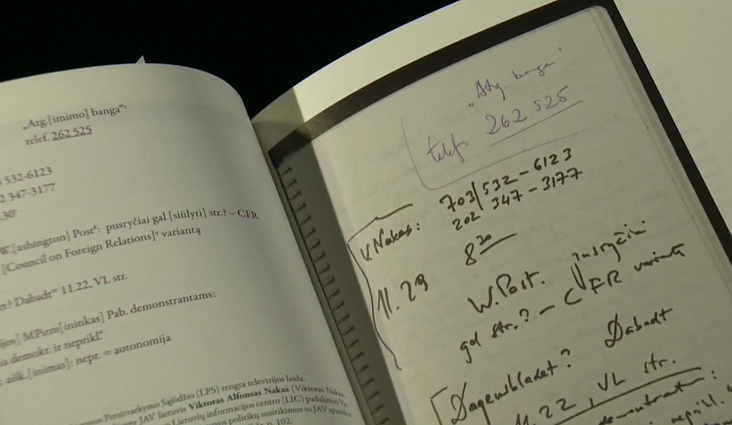 „Atg[imimo] banga“
telef. 262 525
532-6123
2 347-3177
30
[ashington] Post: pusryčiai gal [siūlyti] str.? – CFR
[Council on Foreign Relations] variantą
Dabadt 11.22, VL str.
MPirm[ininkas] Pab. demonstrantams:
demokr. ir neprikl.
aišk.[inimas]: nepr. = autonomija
Persitvarkymo Sąjūdžio (LPS) rengta televizijos laida.
JAV lietuvis Viktoras Alfonsas Nakas (Viktoras Nakas,
Lietuvių informacijos centro (LIC) padalinio
politiką susirikimus su JAV
p. 102.
"Atg banga"
telef. 262 525
V. Nakas: 703/532-6123
202 347-3177
8 30
11.29
W. Post. pusryčiai
gal str.? – CFR variantą
[Dagensbladet? Dabadt
11.22, VL str.
demonstrantam:
neprikl.